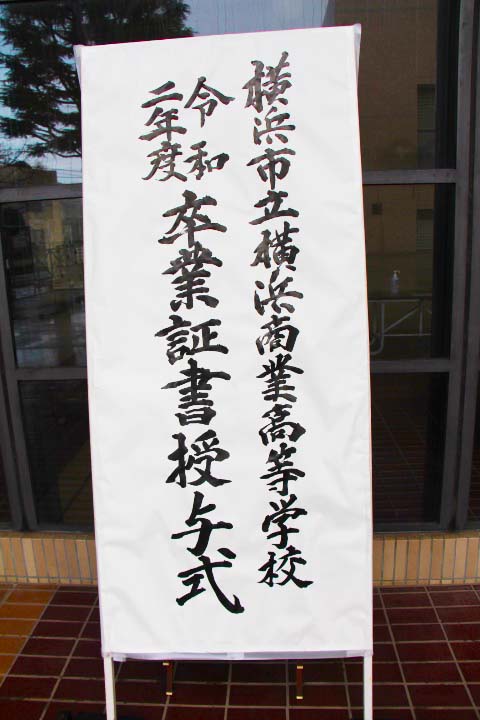 横浜市立横浜商業高等学校
令和
二年度
卒業証書授与式